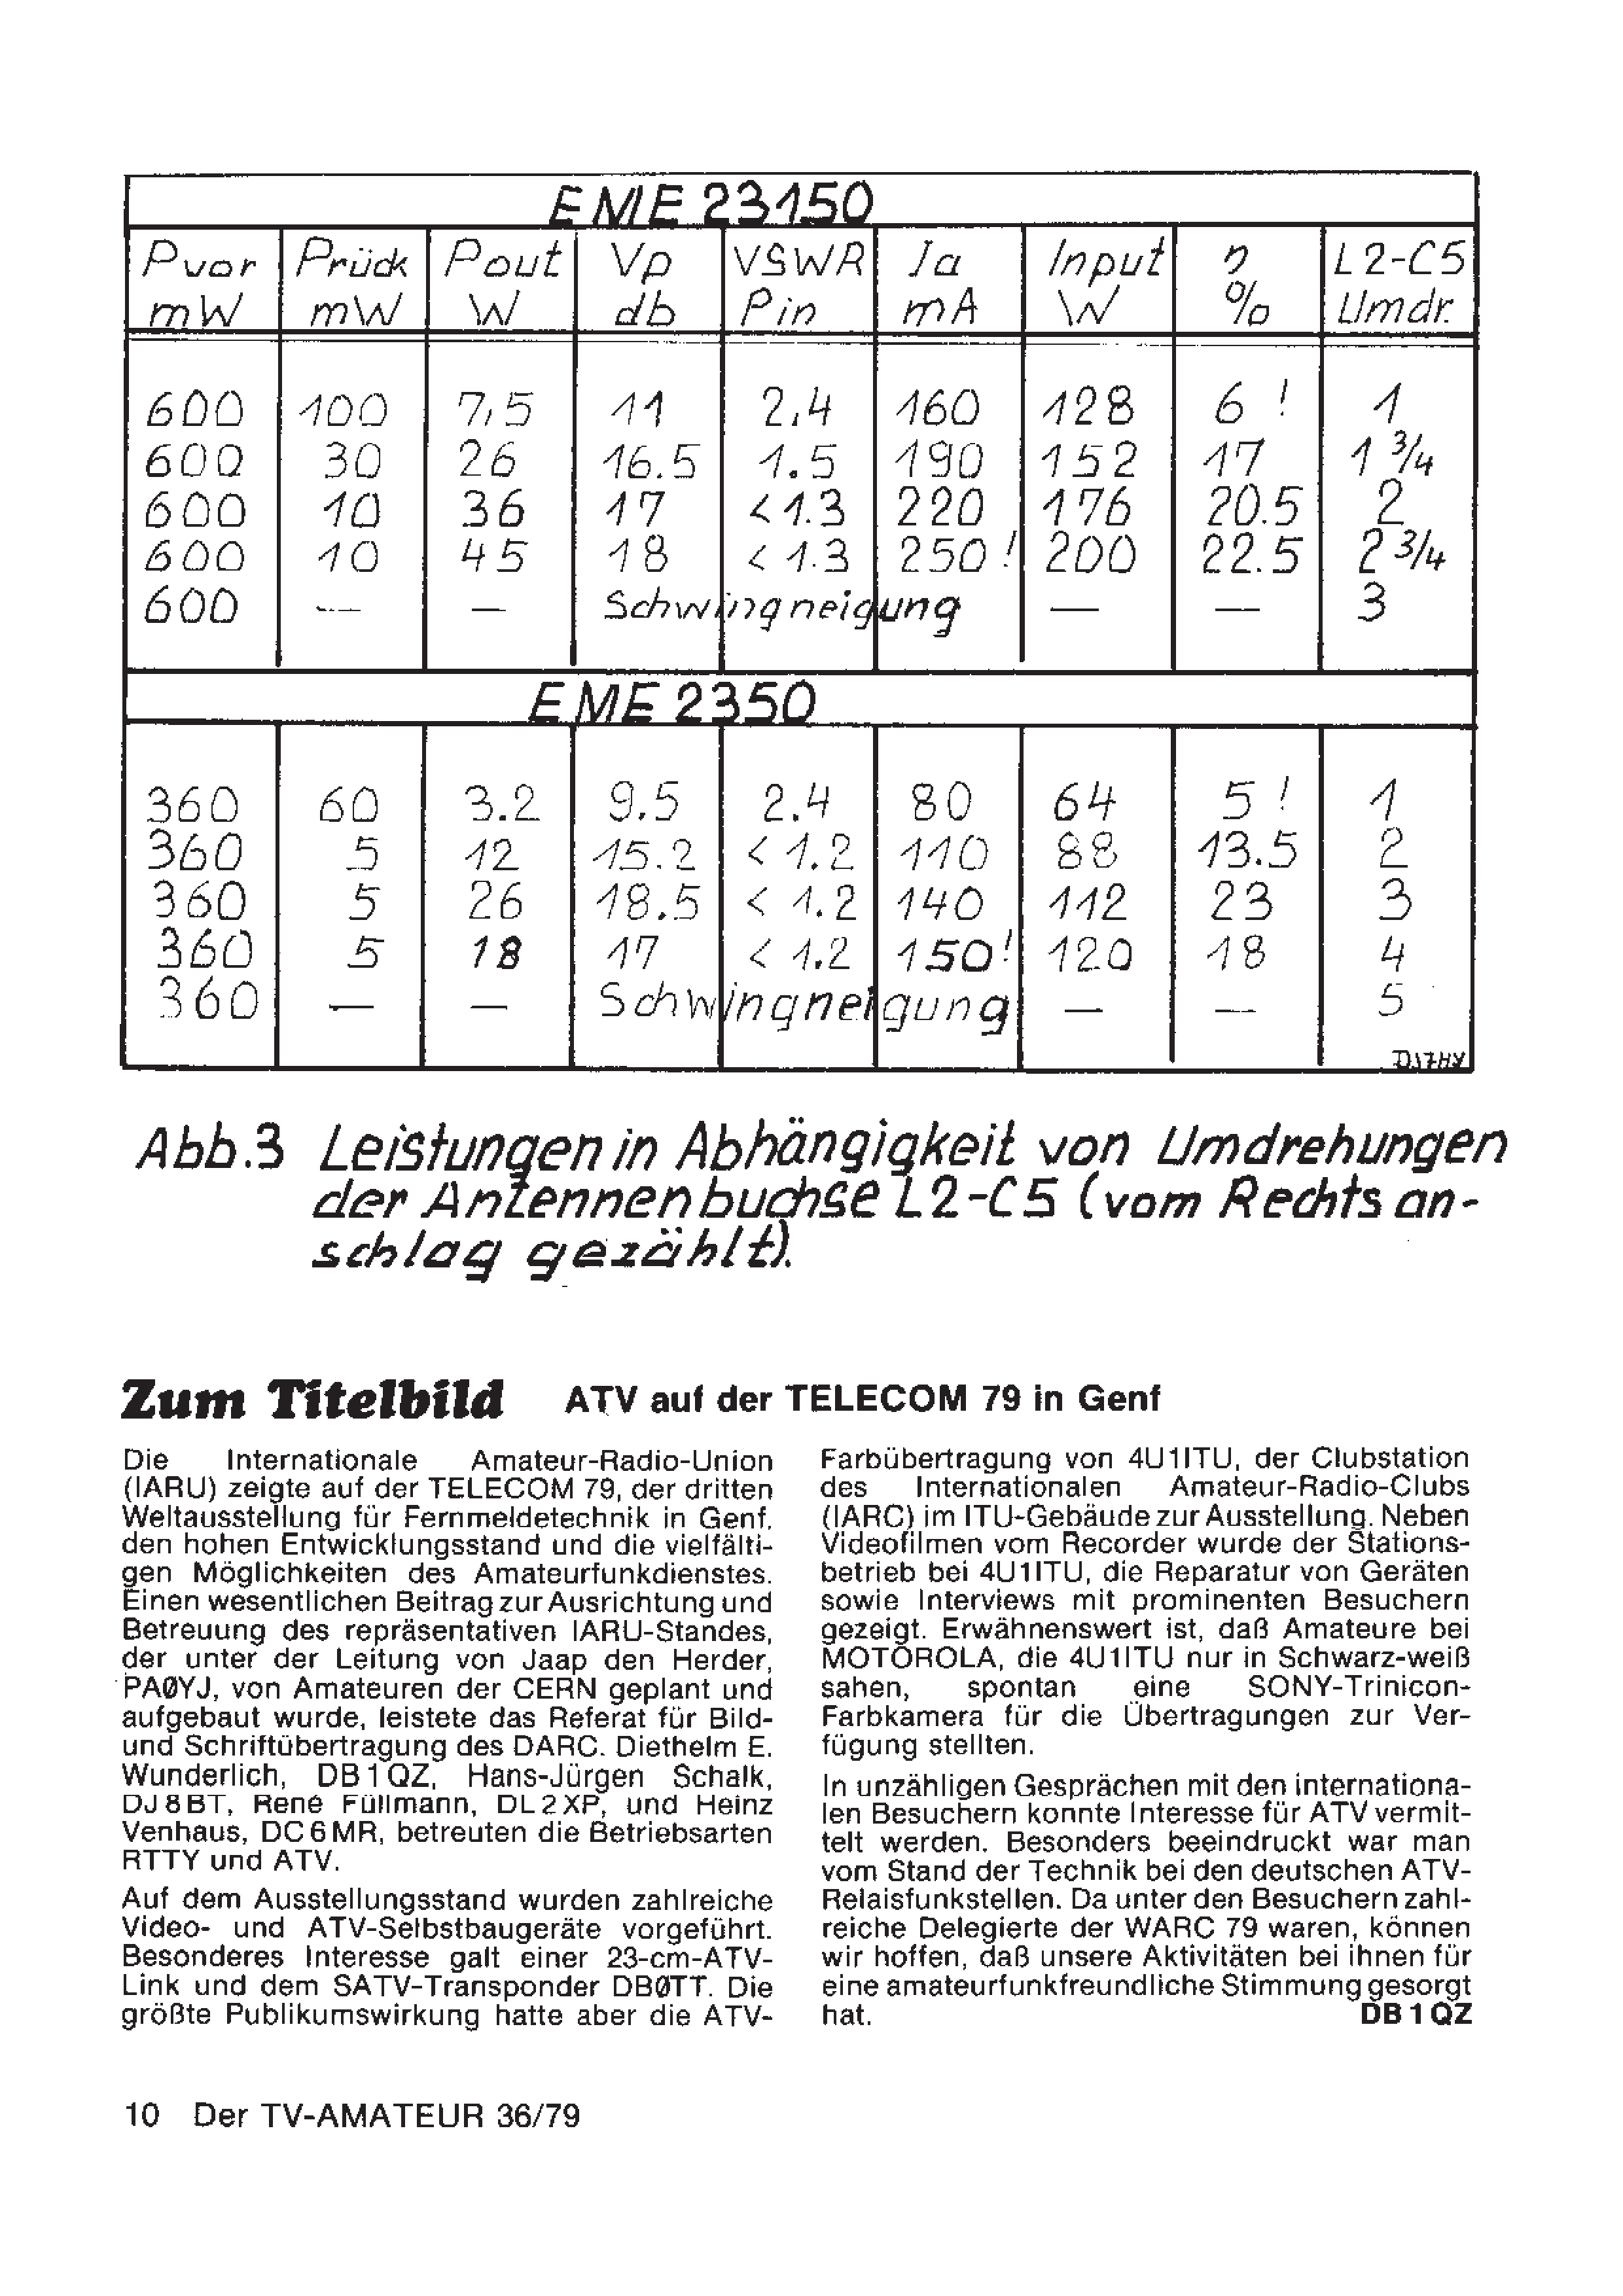 EME 23150
Pvor Prück Pout Vp VSWR Ia Input η L2-C5
mW mW W db Pin mA W % Umdr.
600 100 7,5 11 2,4 160 128 6 ! 1
600 30 26 16.5 1.5 190 152 17 1 3/4
600 10 36 17 <1.3 220 176 20.5 2
600 10 45 18 < 1.3 250 ! 200 22.5 2 3/4
600 — — Schwingneigung — — 3
EME 2350
360 60 3.2 9.5 2.4 80 64 5 ! 1
360 5 12 15.2 < 1.2 110 88 13.5 2
360 5 26 18.5 < 1.2 140 112 23 3
360 5 18 17 < 1.2 150 ! 120 18 4
360 — — Schwingneigung — — 5
DJ7HY
Abb.3 Leistungen in Abhängigkeit von Umdrehungen
der Antennenbuchse L2-C5 (vom Rechtsan-
schlag gezählt).
Zum Titelbild ATV auf der TELECOM 79 in Genf
Die Internationale Amateur-Radio-Union
(IARU) zeigte auf der TELECOM 79, der dritten
Weltausstellung für Fernmeldetechnik in Genf,
den hohen Entwicklungsstand und die vielfälti-
gen Möglichkeiten des Amateurfunkdienstes.
Einen wesentlichen Beitrag zur Ausrichtung und
Betreuung des repräsentativen IARU-Standes,
der unter der Leitung von Jaap den Herder,
PAØYJ, von Amateuren der CERN geplant und
aufgebaut wurde, leistete das Referat für Bild-
und Schriftübertragung des DARC. Diethelm E.
Wunderlich, DB1QZ, Hans-Jürgen Schalk,
DJ8BT, René Füllmann, DL2XP, und Heinz
Venhaus, DC6MR, betreuten die Betriebsarten
RTTY und ATV.
Auf dem Ausstellungsstand wurden zahlreiche
Video- und ATV-Selbstbaugeräte vorgeführt.
Besonderes Interesse galt einer 23-cm-ATV-
Link und dem SATV-Transponder DBØTT. Die
größte Publikumswirkung hatte aber die ATV-
Farbübertragung von 4U1ITU, der Clubstation
des Internationalen Amateur-Radio-Clubs
(IARC) im ITU-Gebäude zur Ausstellung. Neben
Videofilmen vom Recorder wurde der Stations-
betrieb bei 4U1ITU, die Reparatur von Geräten
sowie Interviews mit prominenten Besuchern
gezeigt. Erwähnenswert ist, daß Amateure bei
MOTOROLA, die 4U1ITU nur in Schwarz-weiß
sahen, spontan eine SONY-Trinicon-
Farbkamera für die Übertragungen zur Ver-
fügung stellten.
In unzähligen Gesprächen mit den internationa-
len Besuchern konnte Interesse für ATV vermit-
telt werden. Besonders beeindruckt war man
vom Stand der Technik bei den deutschen ATV-
Relaisfunkstellen. Da unter den Besuchern zahl-
reiche Delegierte der WARC 79 waren, können
wir hoffen, daß unsere Aktivitäten bei ihnen für
eine amateurfunkfreundliche Stimmung gesorgt
hat. DB1QZ
10 Der TV-AMATEUR 36/79